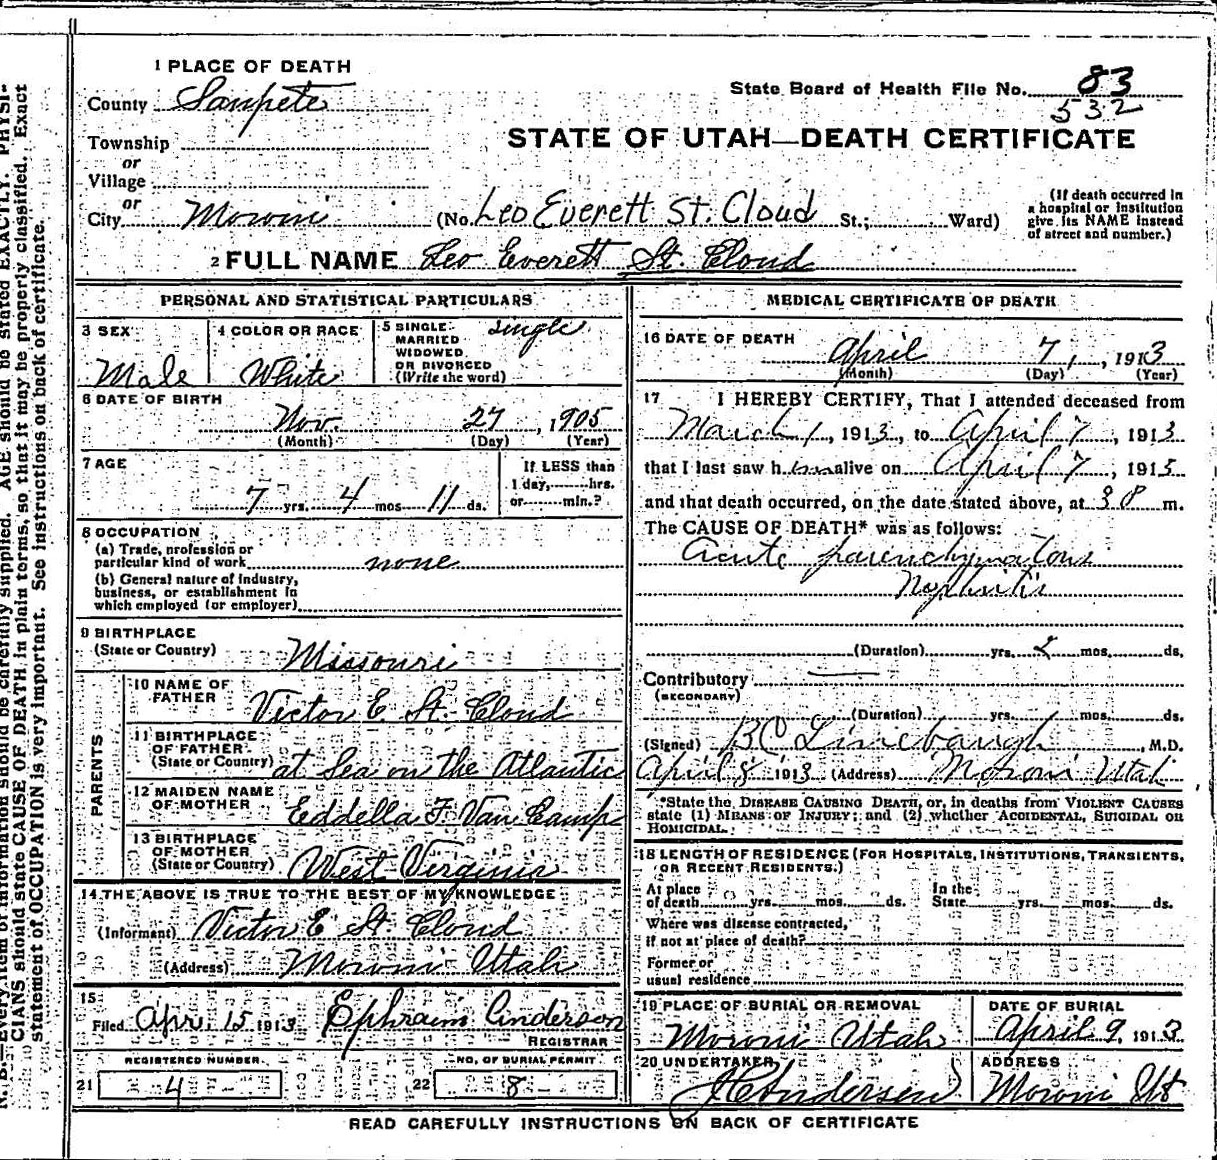 1 PLACE OF DEATH
County Sanpete
State Board of Health File No. 83
532
Township
or
Village
or
City Moroni (No. Leo Everett St. Cloud St.; Ward)
STATE OF UTAH—DEATH CERTIFICATE
(If death occurred in
a hospital or institution
give its NAME instead
of street and number.)
2 FULL NAME Leo Everett St. Cloud
PERSONAL AND STATISTICAL PARTICULARS
3 SEX
Male
4 COLOR OR RACE
White
5 SINGLE
MARRIED
WIDOWED
OR DIVORCED
(Write the word)
single
6 DATE OF BIRTH
Nov. 27, 1905
(Month) (Day) (Year)
7 AGE
7 yrs. 4 mos. 11 ds.
If LESS than
1 day, hrs.
or min.?
8 OCCUPATION
(a) Trade, profession or
particular kind of work none
(b) General nature of industry,
business, or establishment in
which employed (or employer)
9 BIRTHPLACE
(State or Country) Missouri
PARENTS
10 NAME OF
FATHER Victor E. St. Cloud
11 BIRTHPLACE
OF FATHER
(State or Country) at Sea on the Atlantic
12 MAIDEN NAME
OF MOTHER Eddella F. Van Camp
13 BIRTHPLACE
OF MOTHER
(State or Country) West Virginia
14 THE ABOVE IS TRUE TO THE BEST OF MY KNOWLEDGE
(Informant) Victor E St. Cloud
(Address) Moroni Utah
15
Filed Apr. 15 1913 Ephraim Anderson
REGISTRAR
REGISTERED NUMBER
21 4
NO. OF BURIAL PERMIT
22 8
MEDICAL CERTIFICATE OF DEATH
16 DATE OF DEATH
April 7, 1913
(Month) (Day) (Year)
17 I HEREBY CERTIFY, That I attended deceased from
March 1, 1913, to April 7, 1913
that I last saw him alive on April 7, 1913
and that death occurred, on the date stated above, at 3 P m.
The CAUSE OF DEATH* was as follows:
Acute parenchymatous
Nephritis
(Duration) yrs. 2 mos. ds.
Contributory
(SECONDARY)
(Duration) yrs. mos. ds.
(Signed) BC Linebaugh, M.D.
April 8 1913 (Address) Moroni Utah
*State the DISEASE CAUSING DEATH, or, in deaths from VIOLENT CAUSES
state (1) MEANS OF INJURY; and (2) whether ACCIDENTAL, SUICIDAL OR
HOMICIDAL.
18 LENGTH OF RESIDENCE (FOR HOSPITALS, INSTITUTIONS, TRANSIENTS,
OR RECENT RESIDENTS.)
At place
of death yrs. mos. ds.
In the
State yrs. mos. ds.
Where was disease contracted,
if not at place of death?
Former or
usual residence
19 PLACE OF BURIAL OR REMOVAL
Moroni Utah
DATE OF BURIAL
April 9, 1913
20 UNDERTAKER
Andersen
ADDRESS
Moroni Ut
READ CAREFULLY INSTRUCTIONS ON BACK OF CERTIFICATE
N. B.—Every item of information should be carefully supplied. AGE should be stated EXACTLY. PHYSI-
CIANS should state CAUSE OF DEATH in plain terms, so that it may be properly classified. Exact
statement of OCCUPATION is very important. See instructions on back of certificate.